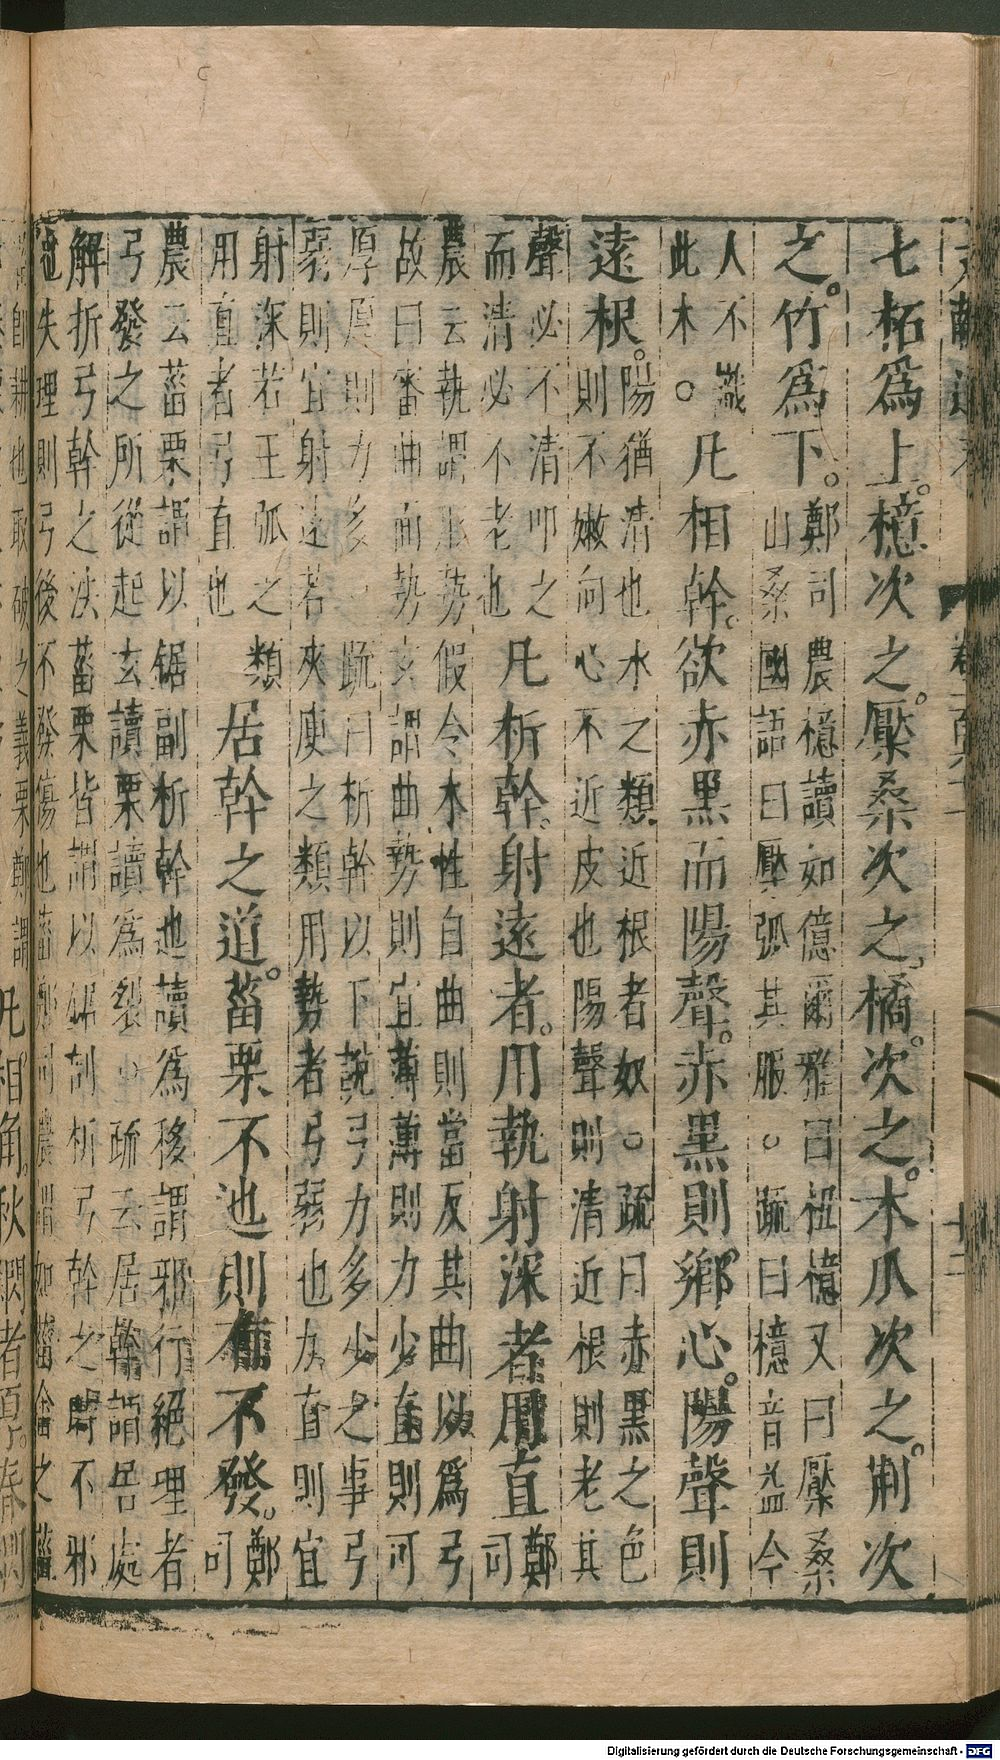 七柘爲上檍次之檿桑次之橘次之木瓜次之荆次
之竹爲下鄭司農檍讀如億爾雅曰杻檍又曰檿桑
山桑國語曰檿弧其服○疏曰檍音益今
人不識
此木○凡相幹欲赤黑而陽聲赤黑則鄉心陽聲則
遠根陽猶清也木之類近根者奴○疏曰赤黑之色
則不嫩向心不近皮也陽聲則清近根則老其
聲必不清叩之
而清必不老也凡析幹射遠者用埶射深者用直鄭
司
農云埶謂形勢假令木性自曲則當反其曲以爲弓
故曰審曲面勢玄謂曲勢則宜薄薄則力少直則可
厚厚則力多○疏曰析幹以下說弓力多少之事弓
弱則宜射遠若夾庾之類用勢者弓弱也力直則宜
射深若王弧之類
用直者弓直也居幹之道菑栗不迆則弓不發鄭
司
農云菑栗謂以鋸副析幹也讀爲移謂邪行絕理者
弓發之所從起玄讀栗讀爲裂 疏云居幹謂居處
解析弓幹之法菑栗皆謂以鋸剖析弓幹之時不邪
迆失理則弓後不發傷也菑鄭司農謂如菑畬之菑
卽耕也取破之義栗鄭謂凡相角秋閷者厚春閷
Digitalisierung gefördert durch die Deutsche Forschungsgemeinschaft - DFG